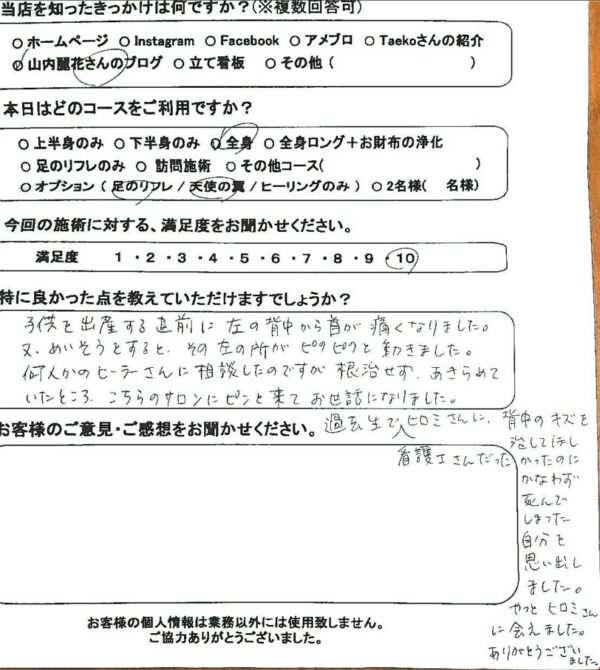 当店を知ったきっかけは何ですか？(※複数回答可)
○ ホームページ ○ Instagram ○ Facebook ○ アメブロ ○ Taekoさんの紹介
○ 山内麗花さんのブログ ○ 立て看板 ○ その他 ( )
本日はどのコースをご利用ですか？
○ 上半身のみ ○ 下半身のみ ○ 全身 ○ 全身ロング＋お財布の浄化
○ 足のリフレのみ ○ 訪問施術 ○ その他コース( )
○ オプション ( 足のリフレ / 天使の翼 / ヒーリングのみ ) ○ 2名様( 名様)
今回の施術に対する、満足度をお聞かせください。
満足度 1 ・ 2 ・ 3 ・ 4 ・ 5 ・ 6 ・ 7 ・ 8 ・ 9 ・ 10
特に良かった点を教えていただけますでしょうか？
子供を出産する直前に左の背中から首が痛くなりました。
又、めいそうとすると、その左の所がピクピクと動きました。
何人かのヒーラーさんに相談したのですが根治せず、あきらめて
いたところ、こちらのサロンにピンと来てお世話になりました。
お客様のご意見・ご感想をお聞かせください。
過去生で ヒロミさんに、背中のキズを
看護士さんだった
治してほし
かったのに
かなわず
死んで
しまった
自分を
思い出し
ました。
やっとヒロミさん
に会えました。
ありがとうござい
ました。
お客様の個人情報は業務以外には使用致しません。
ご協力ありがとうございました。